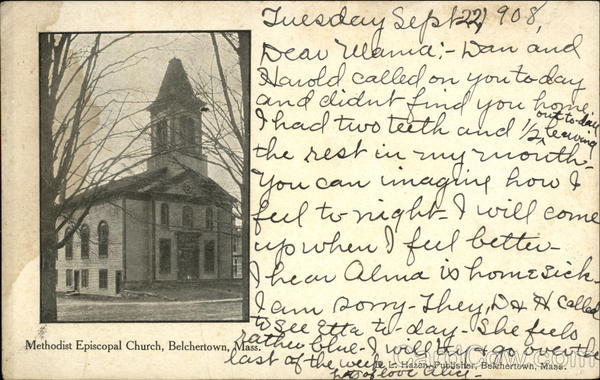 Tuesday Sept 22, 1908,
Dear Mama:- Dan and
Harold called on you to-day
and didnt find you home
I had two teeth and 1/2 out to-day leaving
the rest in my mouth-
You can imagine how I
feel to-night- I will come
up when I feel better-
I hear Alma is homesick-
I am sorry- They, D & H called
to see Etta to-day- She feels
rather blue- I will try & go over the
last of the week
hap of love Alice-
Methodist Episcopal Church, Belchertown, Mass.
L. Hazen, Publisher, Belchertown, Mass.
CardCow.com